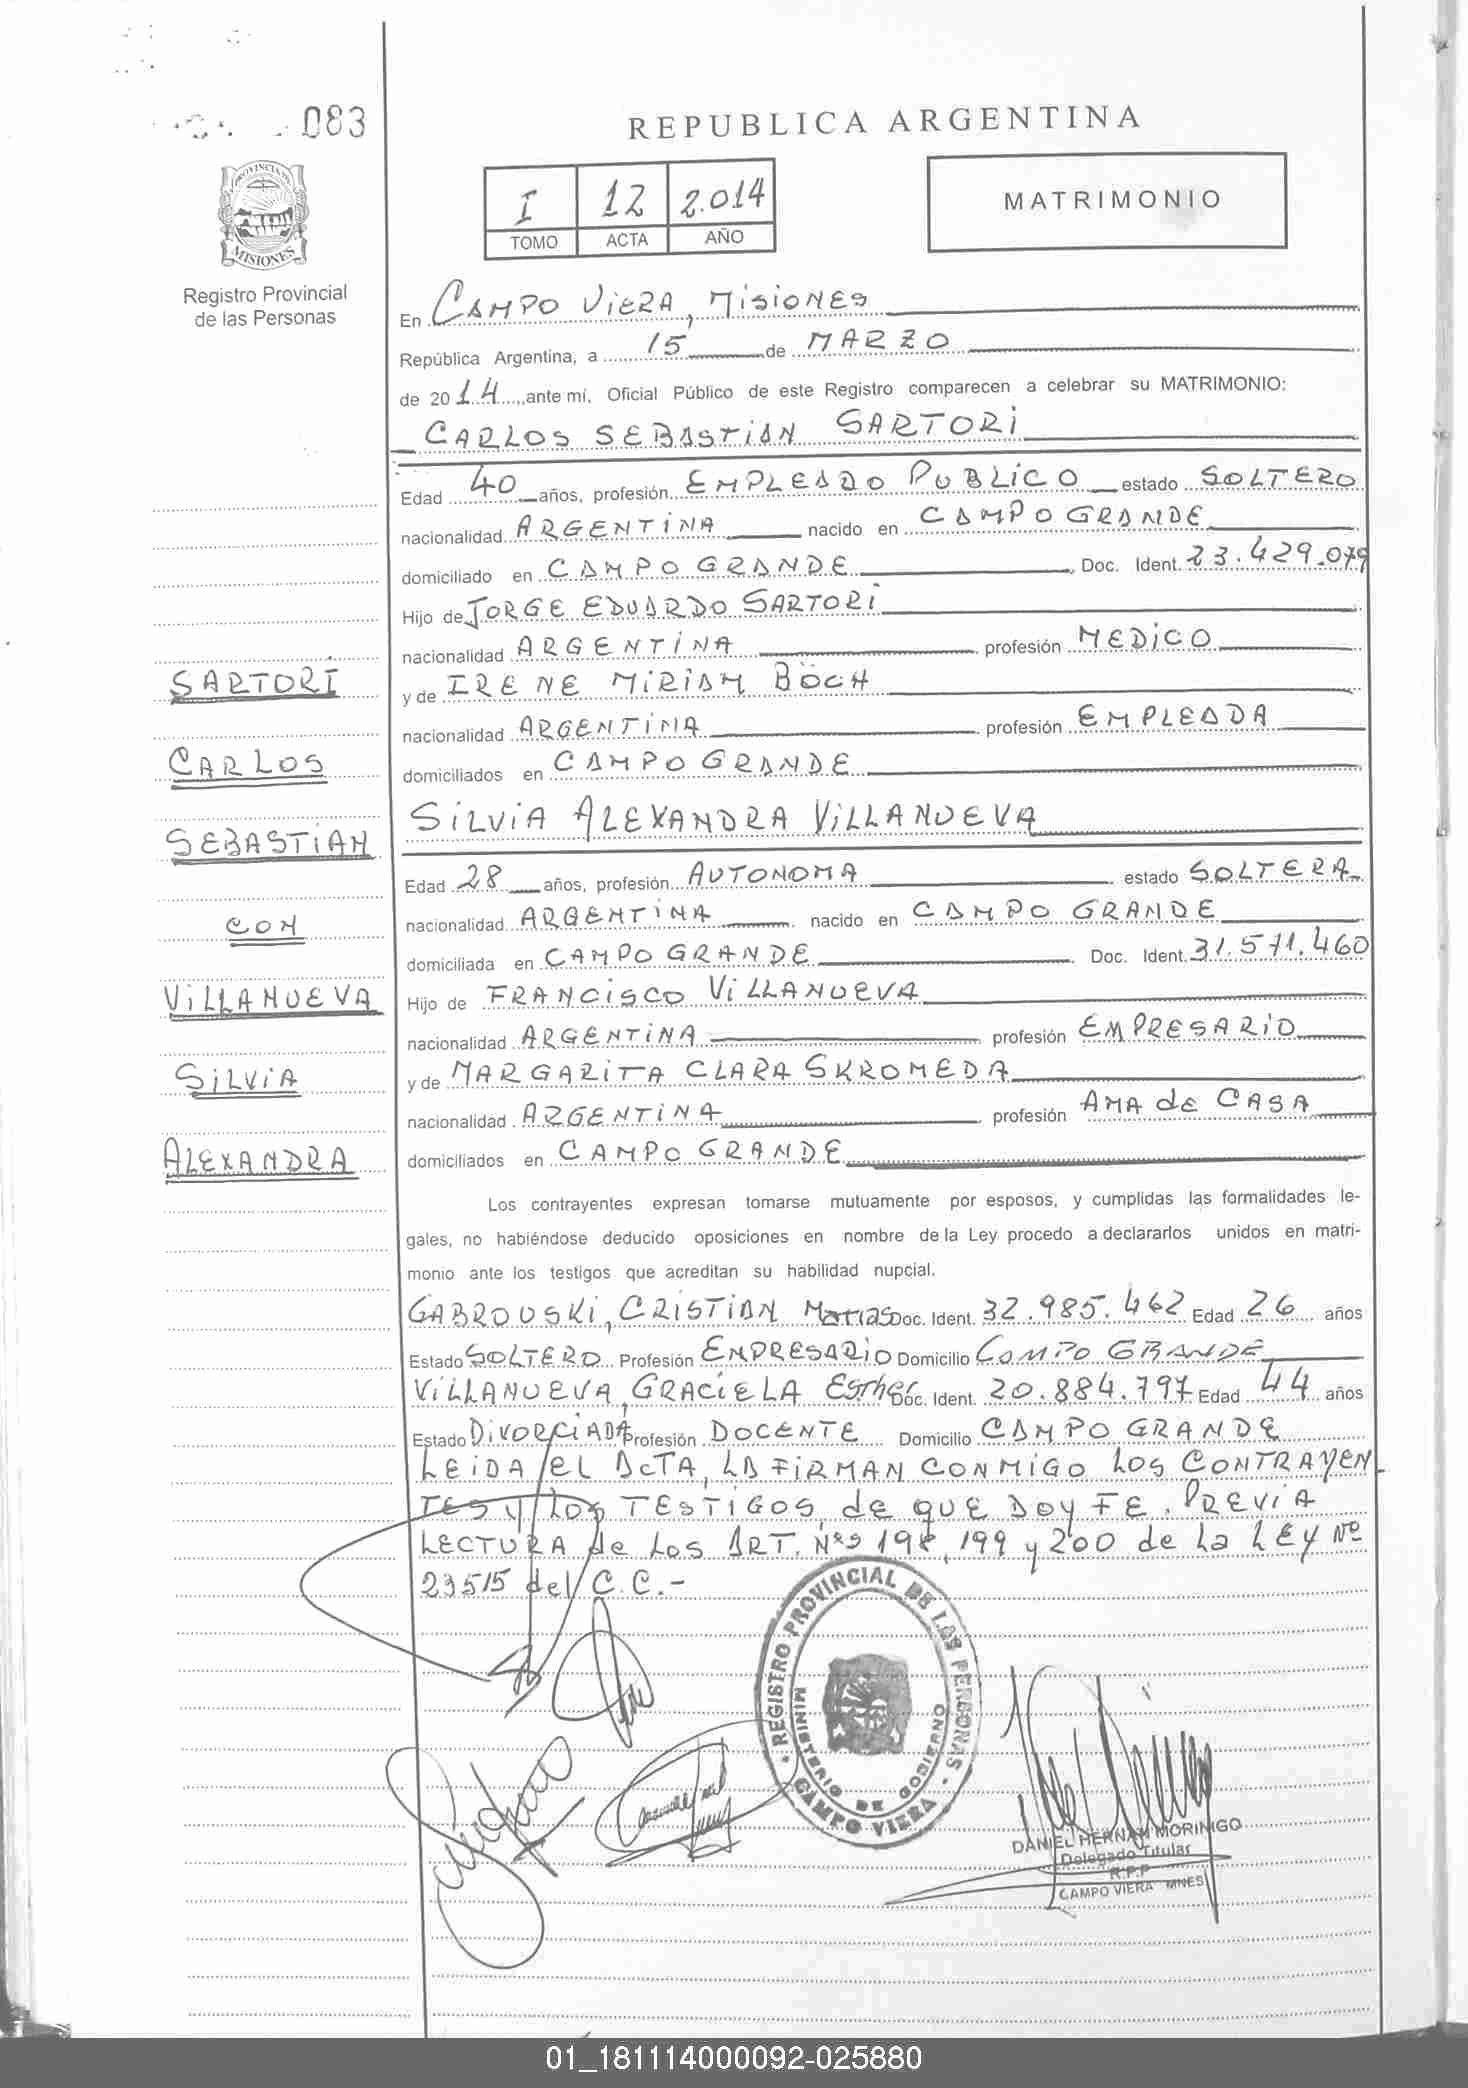 083
REPUBLICA ARGENTINA
PROVINCIA DE
MISIONES
Registro Provincial
de las Personas
I 12 2.014
TOMO ACTA AÑO
MATRIMONIO
En CAMPO VIERA, MISIONES
República Argentina, a 15 de MARZO
de 2014 ante mí, Oficial Público de este Registro comparecen a celebrar su MATRIMONIO:
CARLOS SEBASTIAN SARTORI
Edad 40 años, profesión EMPLEADO PUBLICO estado SOLTERO
nacionalidad ARGENTINA nacido en CAMPO GRANDE
domiciliado en CAMPO GRANDE, Doc. Ident. 23.429.079
Hijo de JORGE EDUARDO SARTORI
nacionalidad ARGENTINA profesión MEDICO
y de IRENE MIRIAM BÖCH
nacionalidad ARGENTINA profesión EMPLEADA
domiciliados en CAMPO GRANDE
SILVIA ALEXANDRA VILLANUEVA
Edad 28 años, profesión AUTONOMA estado SOLTERA
nacionalidad ARGENTINA nacido en CAMPO GRANDE
domiciliada en CAMPO GRANDE Doc. Ident. 31.571.460
Hijo de FRANCISCO VILLANUEVA
nacionalidad ARGENTINA profesión EMPRESARIO
y de MARGARITA CLARA SKROMEDA
nacionalidad ARGENTINA profesión AMA de CASA
domiciliados en CAMPO GRANDE
SARTORI
CARLOS
SEBASTIAN
CON
VILLANUEVA
SILVIA
ALEXANDRA
Los contrayentes expresan tomarse mutuamente por esposos, y cumplidas las formalidades le-
gales, no habiéndose deducido oposiciones en nombre de la Ley procedo a declararlos unidos en matri-
monio ante los testigos que acreditan su habilidad nupcial.
GABROUSKI, CRISTIAN Matias Doc. Ident. 32.985.462 Edad 26 años
Estado SOLTERO Profesión EMPRESARIO Domicilio CAMPO GRANDE
VILLANUEVA, GRACIELA Esther Doc. Ident. 20.884.797 Edad 44 años
Estado DIVORCIADA Profesión DOCENTE Domicilio CAMPO GRANDE
LEIDA EL ACTA, LA FIRMAN CONMIGO LOS CONTRAYEN
TES Y LOS TESTIGOS, de QUE DOY FE. PREVIA
LECTURA de LOS ART. Nºs 198, 199 y 200 de La LEY Nº
23515 del C.C.-
REGISTRO PROVINCIAL DE LAS PERSONAS
MINISTERIO DE GOBIERNO
CAMPO VIERA
DANIEL HERNAN MORINIGO
Delegado Titular
R.P.P
CAMPO VIERA MNES
01_181114000092-025880